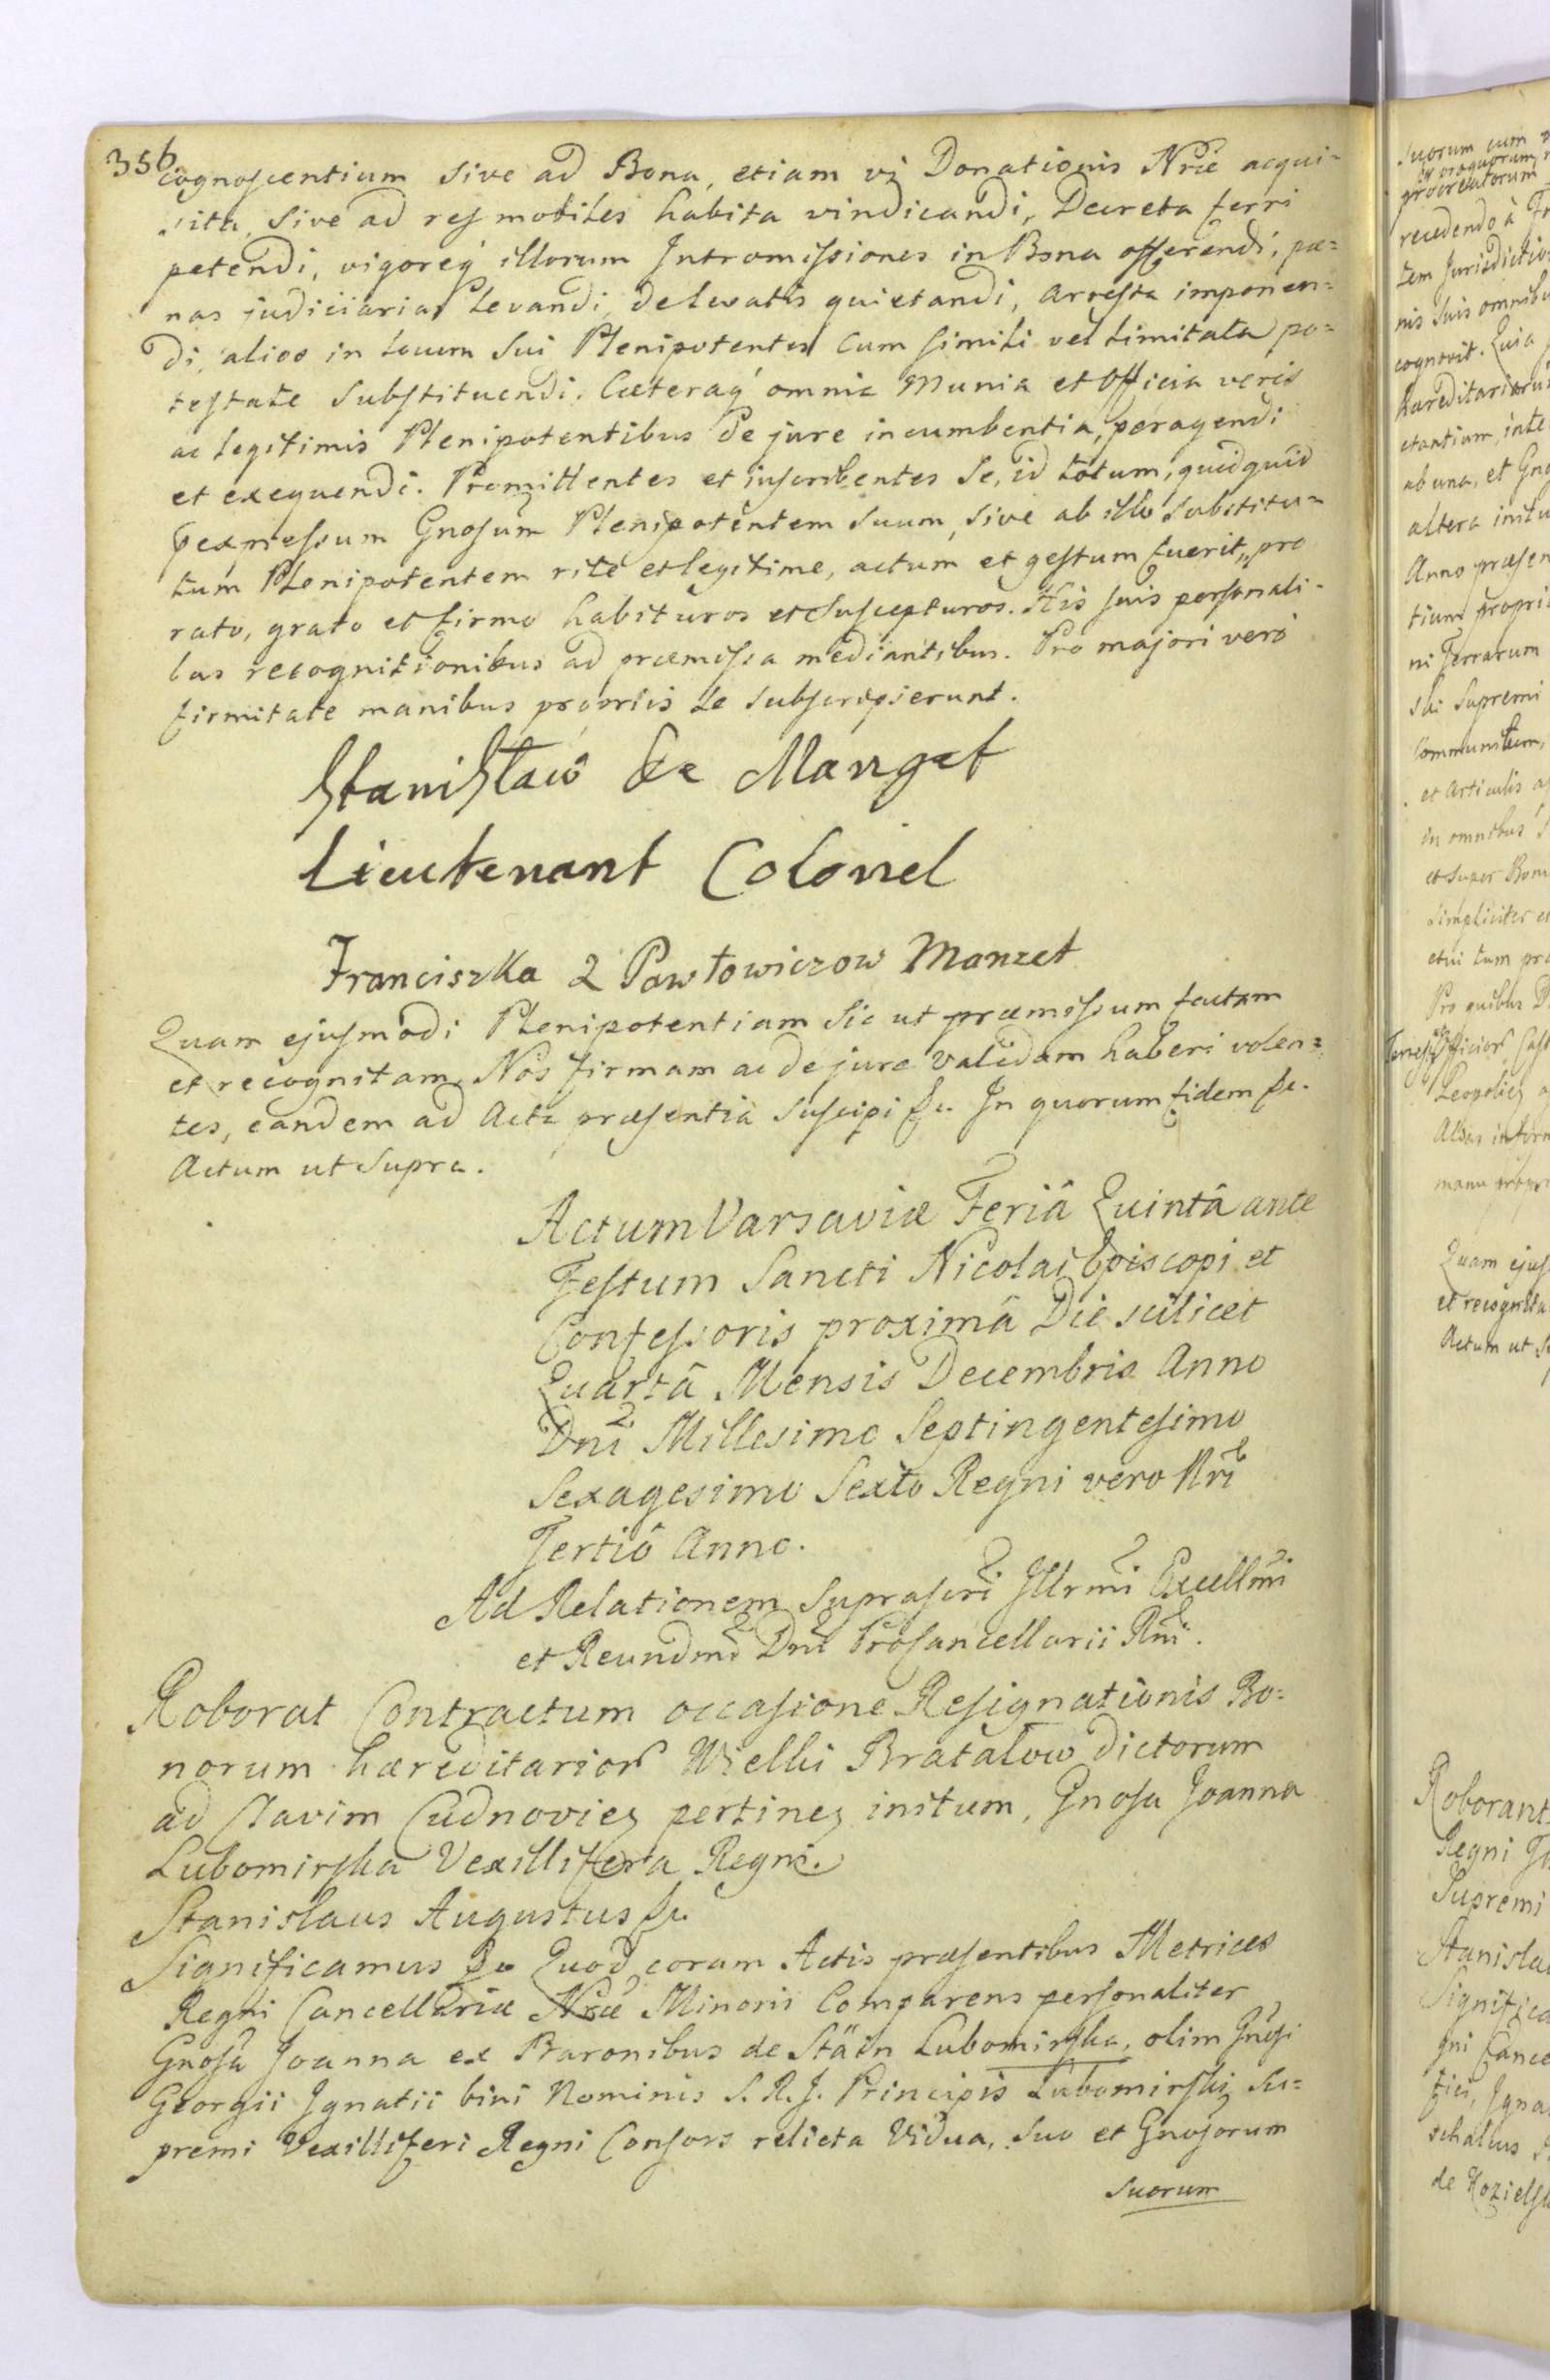 356
cognoscentium sive ad Bona, etiam vi Donationis Nrae acqui-
sita, sive ad res mobiles habita vindicandi, Decreta ferri
petendi, vigoreq illorum Intromissiones in Bona offerendi, pae=
nas judiciarias levandi, de levatis quietandi, arresta imponen=
di, alios in locum sui Plenipotentes cum simili vel limitata po=
testate substituendi. Caeteraq omnia munia et officia veris
ac legitimis Plenipotentibus de jure incumbentia, peragendi
et exequendi. Promittentes et inscribentes se, id totum, quidquid
p expressum Gnosum Plenipotentem suum, sive ab illo substitu=
tum Plenipotentem rite et legitime, actum et gestum fuerit, pro
rato, grato et firmo habituros et suscepturos. His suis personali-
bus recognitionibus ad praemissa mediantibus. Pro majori vero
firmitate manibus propriis se subscripserunt.
Stanisław de Manget
Lieutenant Colonel
Franciszka z Pawłowiczow Manzet
Quam ejusmodi Plenipotentiam sic ut praemissum factam
et recognitam, Nos firmam ac de jure validam haberi volen=
tes, eandem ad Acta praesentia suscipi &c. In quorum fidem &c.
Actum ut supra.
Actum Varsaviae Feriâ Quintâ ante
Festum Sancti Nicolai Episcopi et
Confessoris proximâ Die scilicet
Quartâ Mensis Decembris Anno
Dni Millesimo Septingentesimo
Sexagesimo Sexto Regni vero Nri
Tertiô Anno.
Ad Relationem suprascri Illrmi Excellmi
et Reundmi Dni Procancellarii Rni.
Roborat Contractum occasione Resignationis Bo=
norum haereditarior Wielki Bratałow dictorum
ad Clavim Cudnovien pertinen initum, Gnosa Joanna
Lubomirska Vexillifera Regni.
Stanislaus Augustus &c.
Significamus &c Quod coram Actis praesentibus Metrices
Regni Cancellariae Nrae Minoris Comparens personaliter
Gnosa Joanna ex Baronibus de Stäin Lubomirska, olim Gnosi
Georgii Ignatii bini Nominis S. R. I. Principis Lubomirski Su=
premi Vexilliferi Regni Consors relicta Vidua, suo et Gnosorum
suorum
suorum cum
procreatorum
recedendo à
tem Jurisdictio
nis suis omnibu
cognovit. Quia
haereditariorum
ctantium, inte
ab una, et Gno
altera initu
Anno praesen
tium propri
ni Terrarum
ski Supremi
Communitum,
et Articulis
in omnibus
et super Bon
simpliciter e
Pro quibus
Leopolien
manu propr
Quam ejus
et recognita
Actum ut s
Roborant
Regni
Supremi
Stanisla
Signific
gni Cance
fici, Igna
schalcus
de Kozielsk